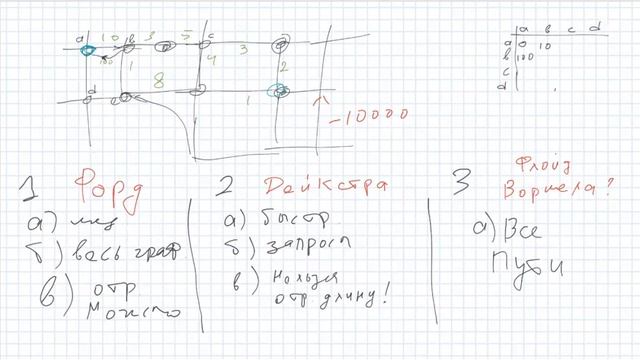 a b c d
a 10 b 3 5 c 3
a 0 10
b 100
c
d
100 1 8 4 2
d 1
-10000
1 Форд
2 Дейкстра
3 Флойд
Воршела?
а)
б) весь граф
в) отр
можно
а) быстр
б) запросп
в) нельзя
отр длину!
а) Все
Пути